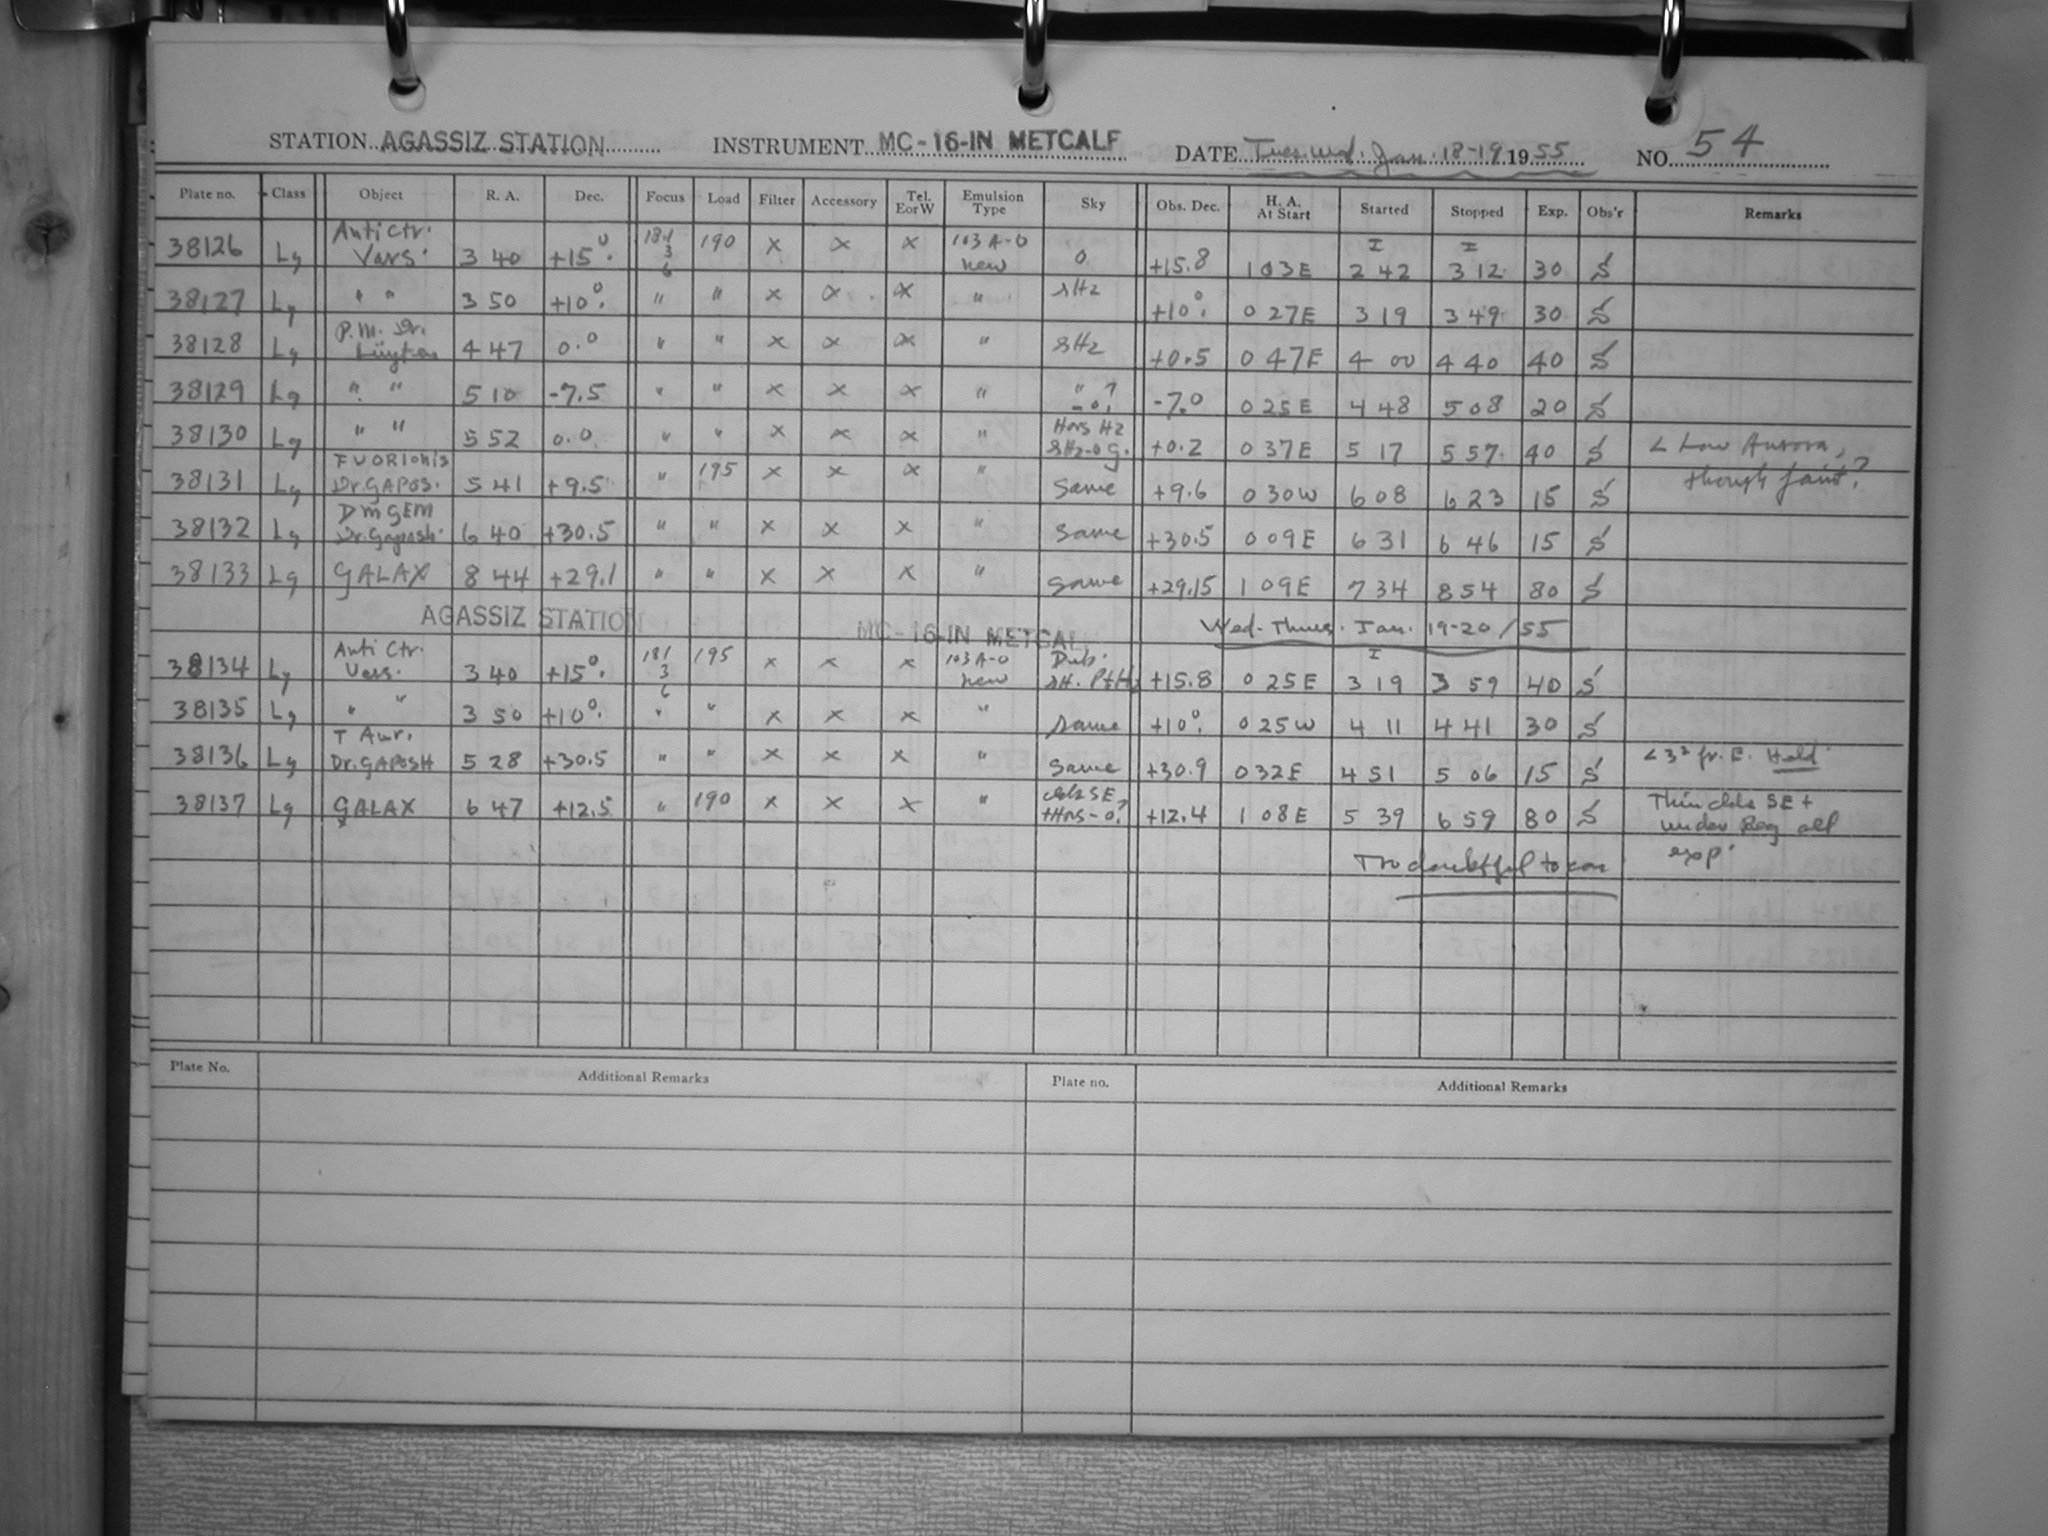 STATION AGASSIZ STATION INSTRUMENT MC-16-IN METCALF DATE Tues. Wed. Jan. 18-19 1955 NO. 54
Plate no. Class Object R. A. Dec. Focus Load Filter Accessory Tel. E or W Emulsion Type Sky Obs. Dec. H. A. At Start Started Stopped Exp. Obs'r Remarks
38126 Lg Anti Ctr. Vars. 3 40 +15°. 181 3 6 190 x x x 103 A-O new 0 +15.8 1 03E I 2 42 I 3 12 30 S
38127 Lg " " 3 50 +10°. " " x x x " sHz +10°. 0 27E 3 19 3 49 30 S
38128 Lg P.M. Dr. Luyten 4 47 0.0 " " x x x " sHz +0.5 0 47E 4 00 4 40 40 S
38129 Lg " " 5 10 -7.5 " " x x x " " ? -0. -7.0 0 25E 4 48 5 08 20 S
38130 Lg " " 5 52 0.0 " " x x x " Hors Hz sHz-0 g. +0.2 0 37E 5 17 5 57 40 S < Low Aurora,
38131 Lg FU ORIONIS Dr. GAPOS. 5 41 +9.5 " 195 x x x " Same +9.6 0 30W 6 08 6 23 15 S though faint?
38132 Lg DM GEM Dr. Gaposh. 6 40 +30.5 " " x x x " Same +30.5 0 09E 6 31 6 46 15 S
38133 Lg GALAX 8 44 +29.1 " " x x x " Same +29.15 1 09E 7 34 8 54 80 S
AGASSIZ STATION MC-16-IN METCAL Wed-Thurs. Jan. 19-20/55
38134 Lg Anti Ctr. Vars. 3 40 +15°. 181 3 6 195 x x x 103 A-O new +15.8 0 25E I 3 19 3 59 40 S
38135 Lg " " 3 50 +10°. " " x x x " Same +10°. 0 25W 4 11 4 41 30 S
38136 Lg T Aur. Dr. GAPOSH 5 28 +30.5 " " x x x " Same +30.9 0 32E 4 51 5 06 15 S < 3² fr. E. Held
38137 Lg GALAX x 6 47 +12.5 " 190 x x x " clds SE +Hors-0? +12.4 1 08E 5 39 6 59 80 S Thin clds SE +
under Reg all
exp.
Too doubtful to con
Plate No. Additional Remarks Plate no. Additional Remarks